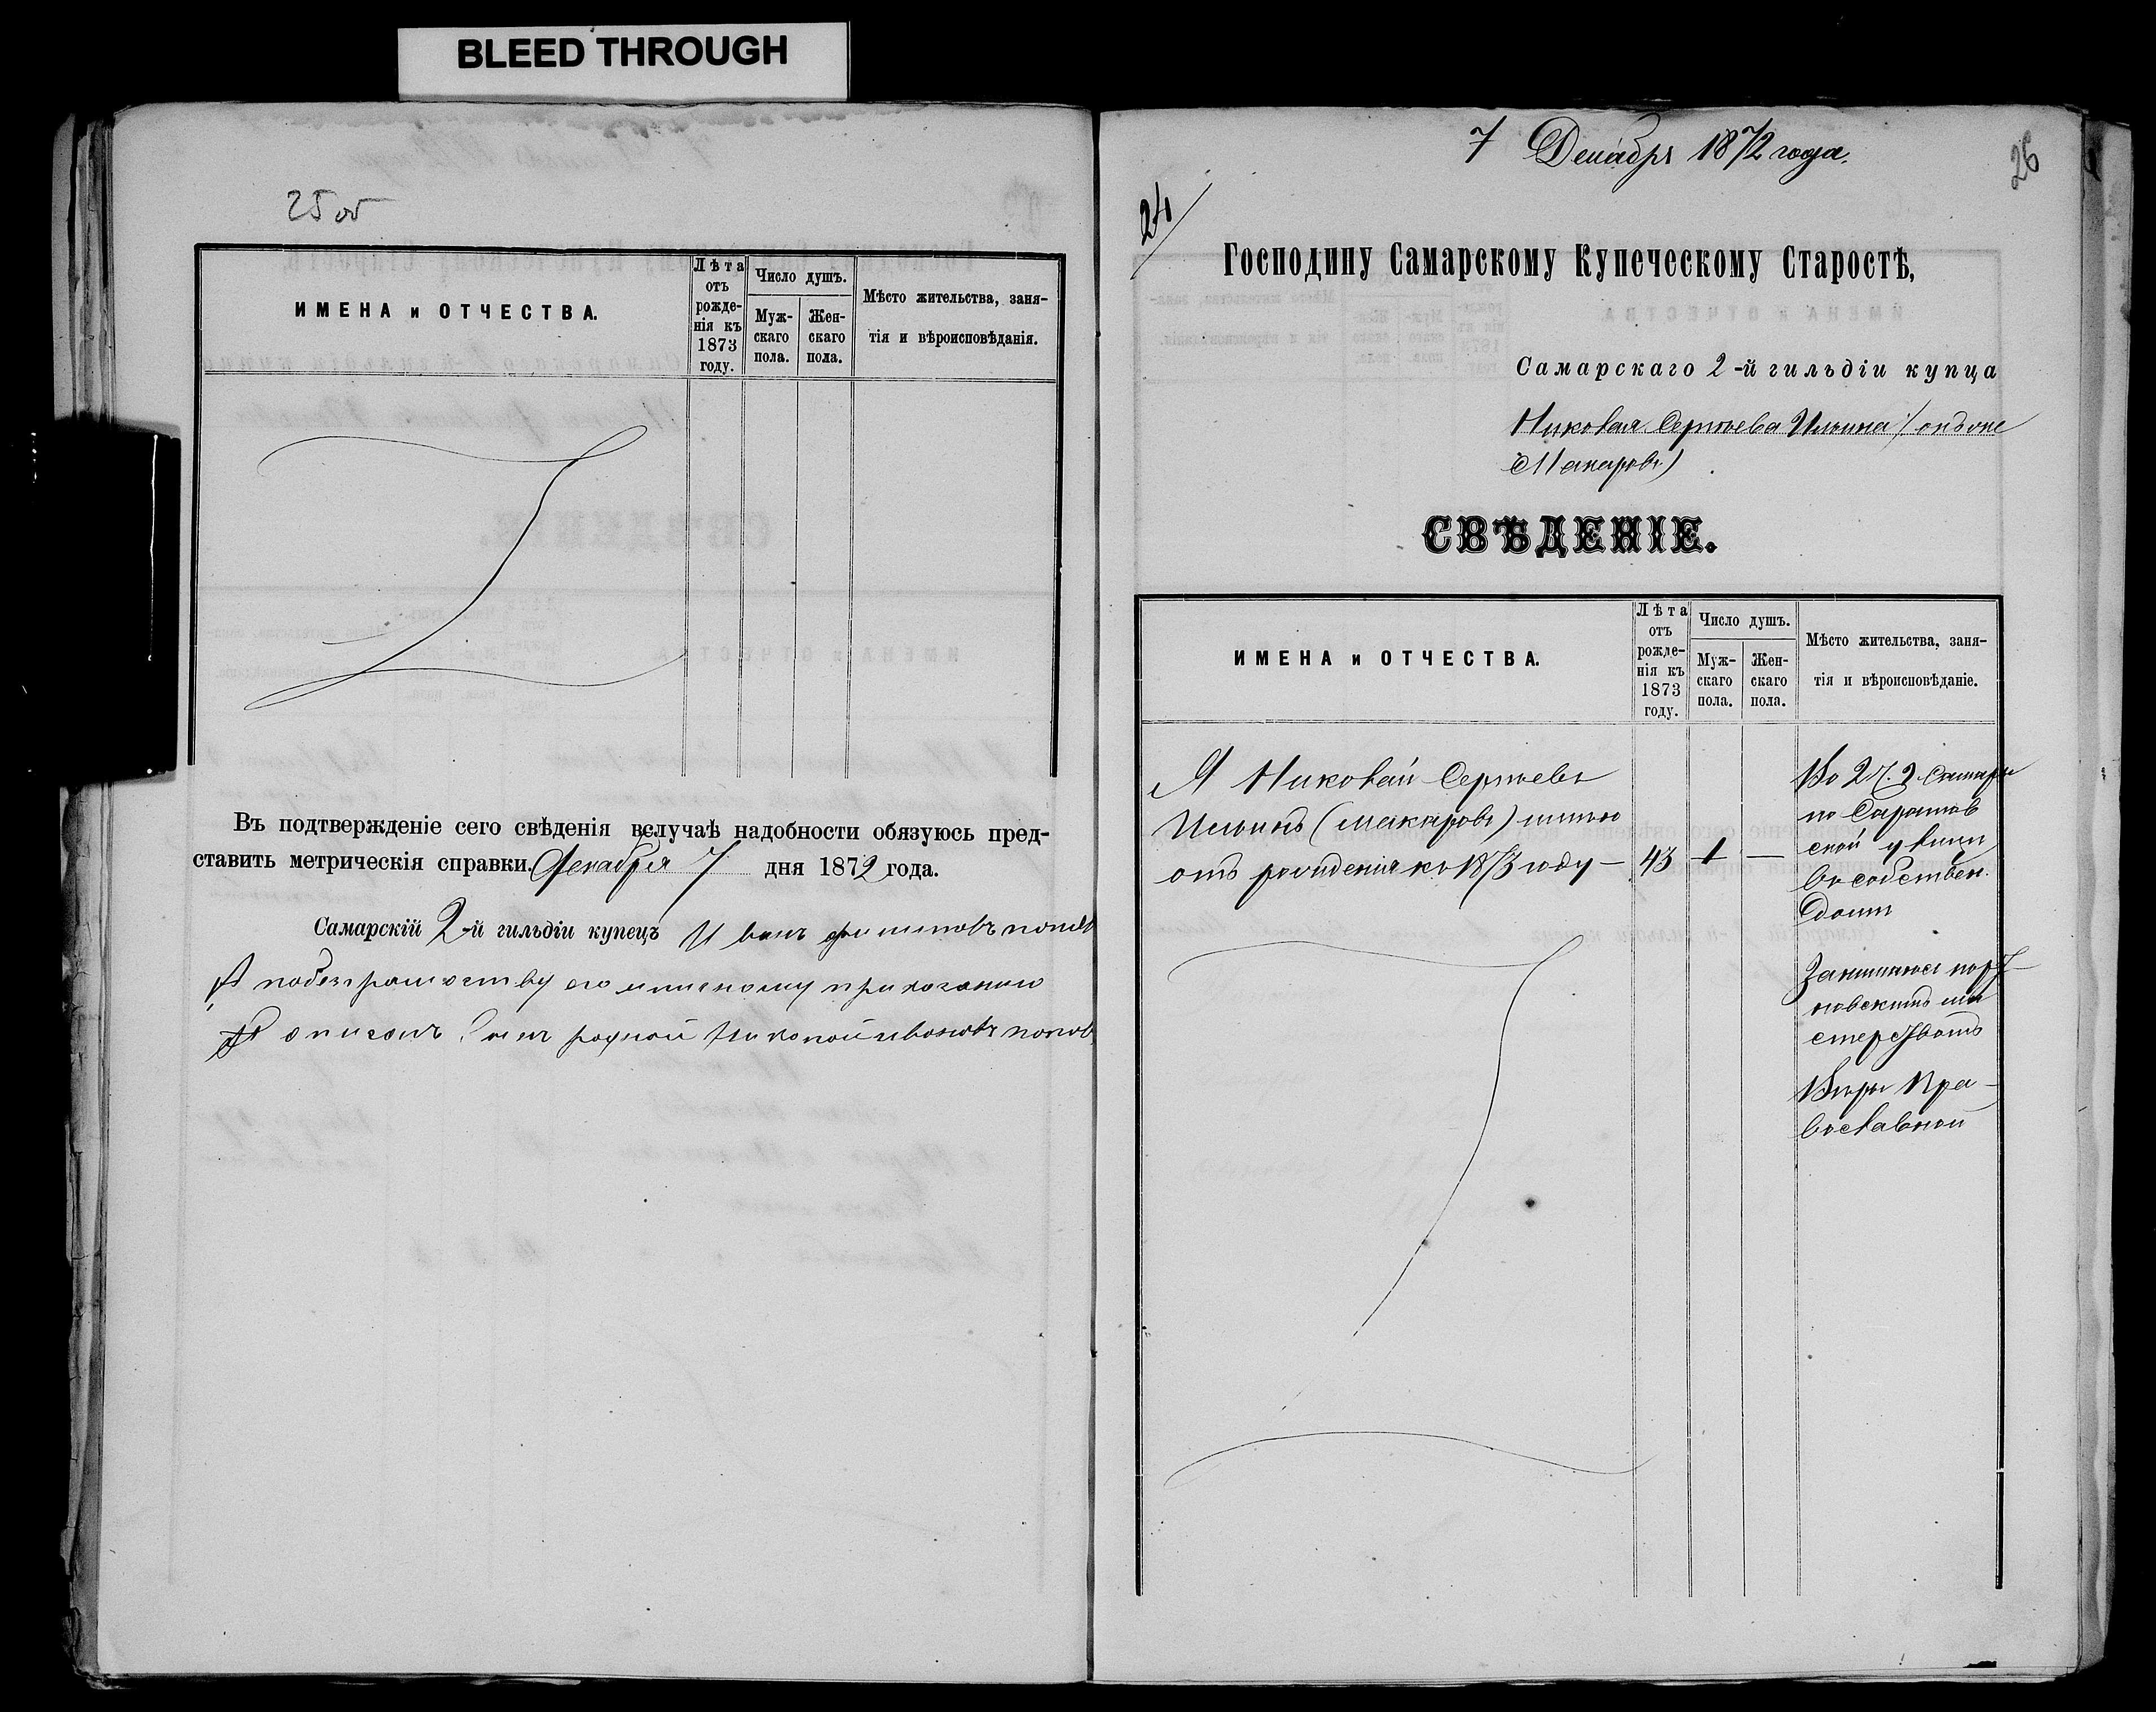 BLEED THROUGH
25 об
ИМЕНА и ОТЧЕСТВА.
Лѣта отъ рожде-нія къ 1873 году.
Число душъ.
Муж-скаго пола.
Жен-скаго пола.
Мѣсто жительства, заня-
тія и вѣроисповѣданія.
Въ подтвержденіе сего свѣденія вслучаѣ надобности обязуюсь пред-
ставить метрическія справки. Декабря 7 дня 1872 года.
Самарскій 2-й гильдіи купецъ Иванъ попов
А побезграмотству его личному приказанию
сынъ родной Николай Ивановъ попов
7 Декабря 1872 года.
26
24
Господину Самарскому Купеческому Старостѣ,
Самарскаго 2-й гильдіи купца
Николая Сергѣева Ильина (онъ же
Макаровъ)
СВѢДЕНІЕ.
ИМЕНА и ОТЧЕСТВА.
Лѣта отъ рожде-нія къ 1873 году.
Число душъ.
Муж-скаго пола.
Жен-скаго пола.
Мѣсто жительства, заня-
тія и вѣроисповѣданіе.
Я Николай Сергѣевъ
Ильинъ (Макаровъ) имѣю
отъ рожденія къ 1873 году — 43 1 —
Во 2 ч. г. Самары
по Саратов
ской улицы
въ собствен.
домѣ
Занимаюсь порт
новскимъ ма
стерствомъ
Вѣры Пра-
вославной